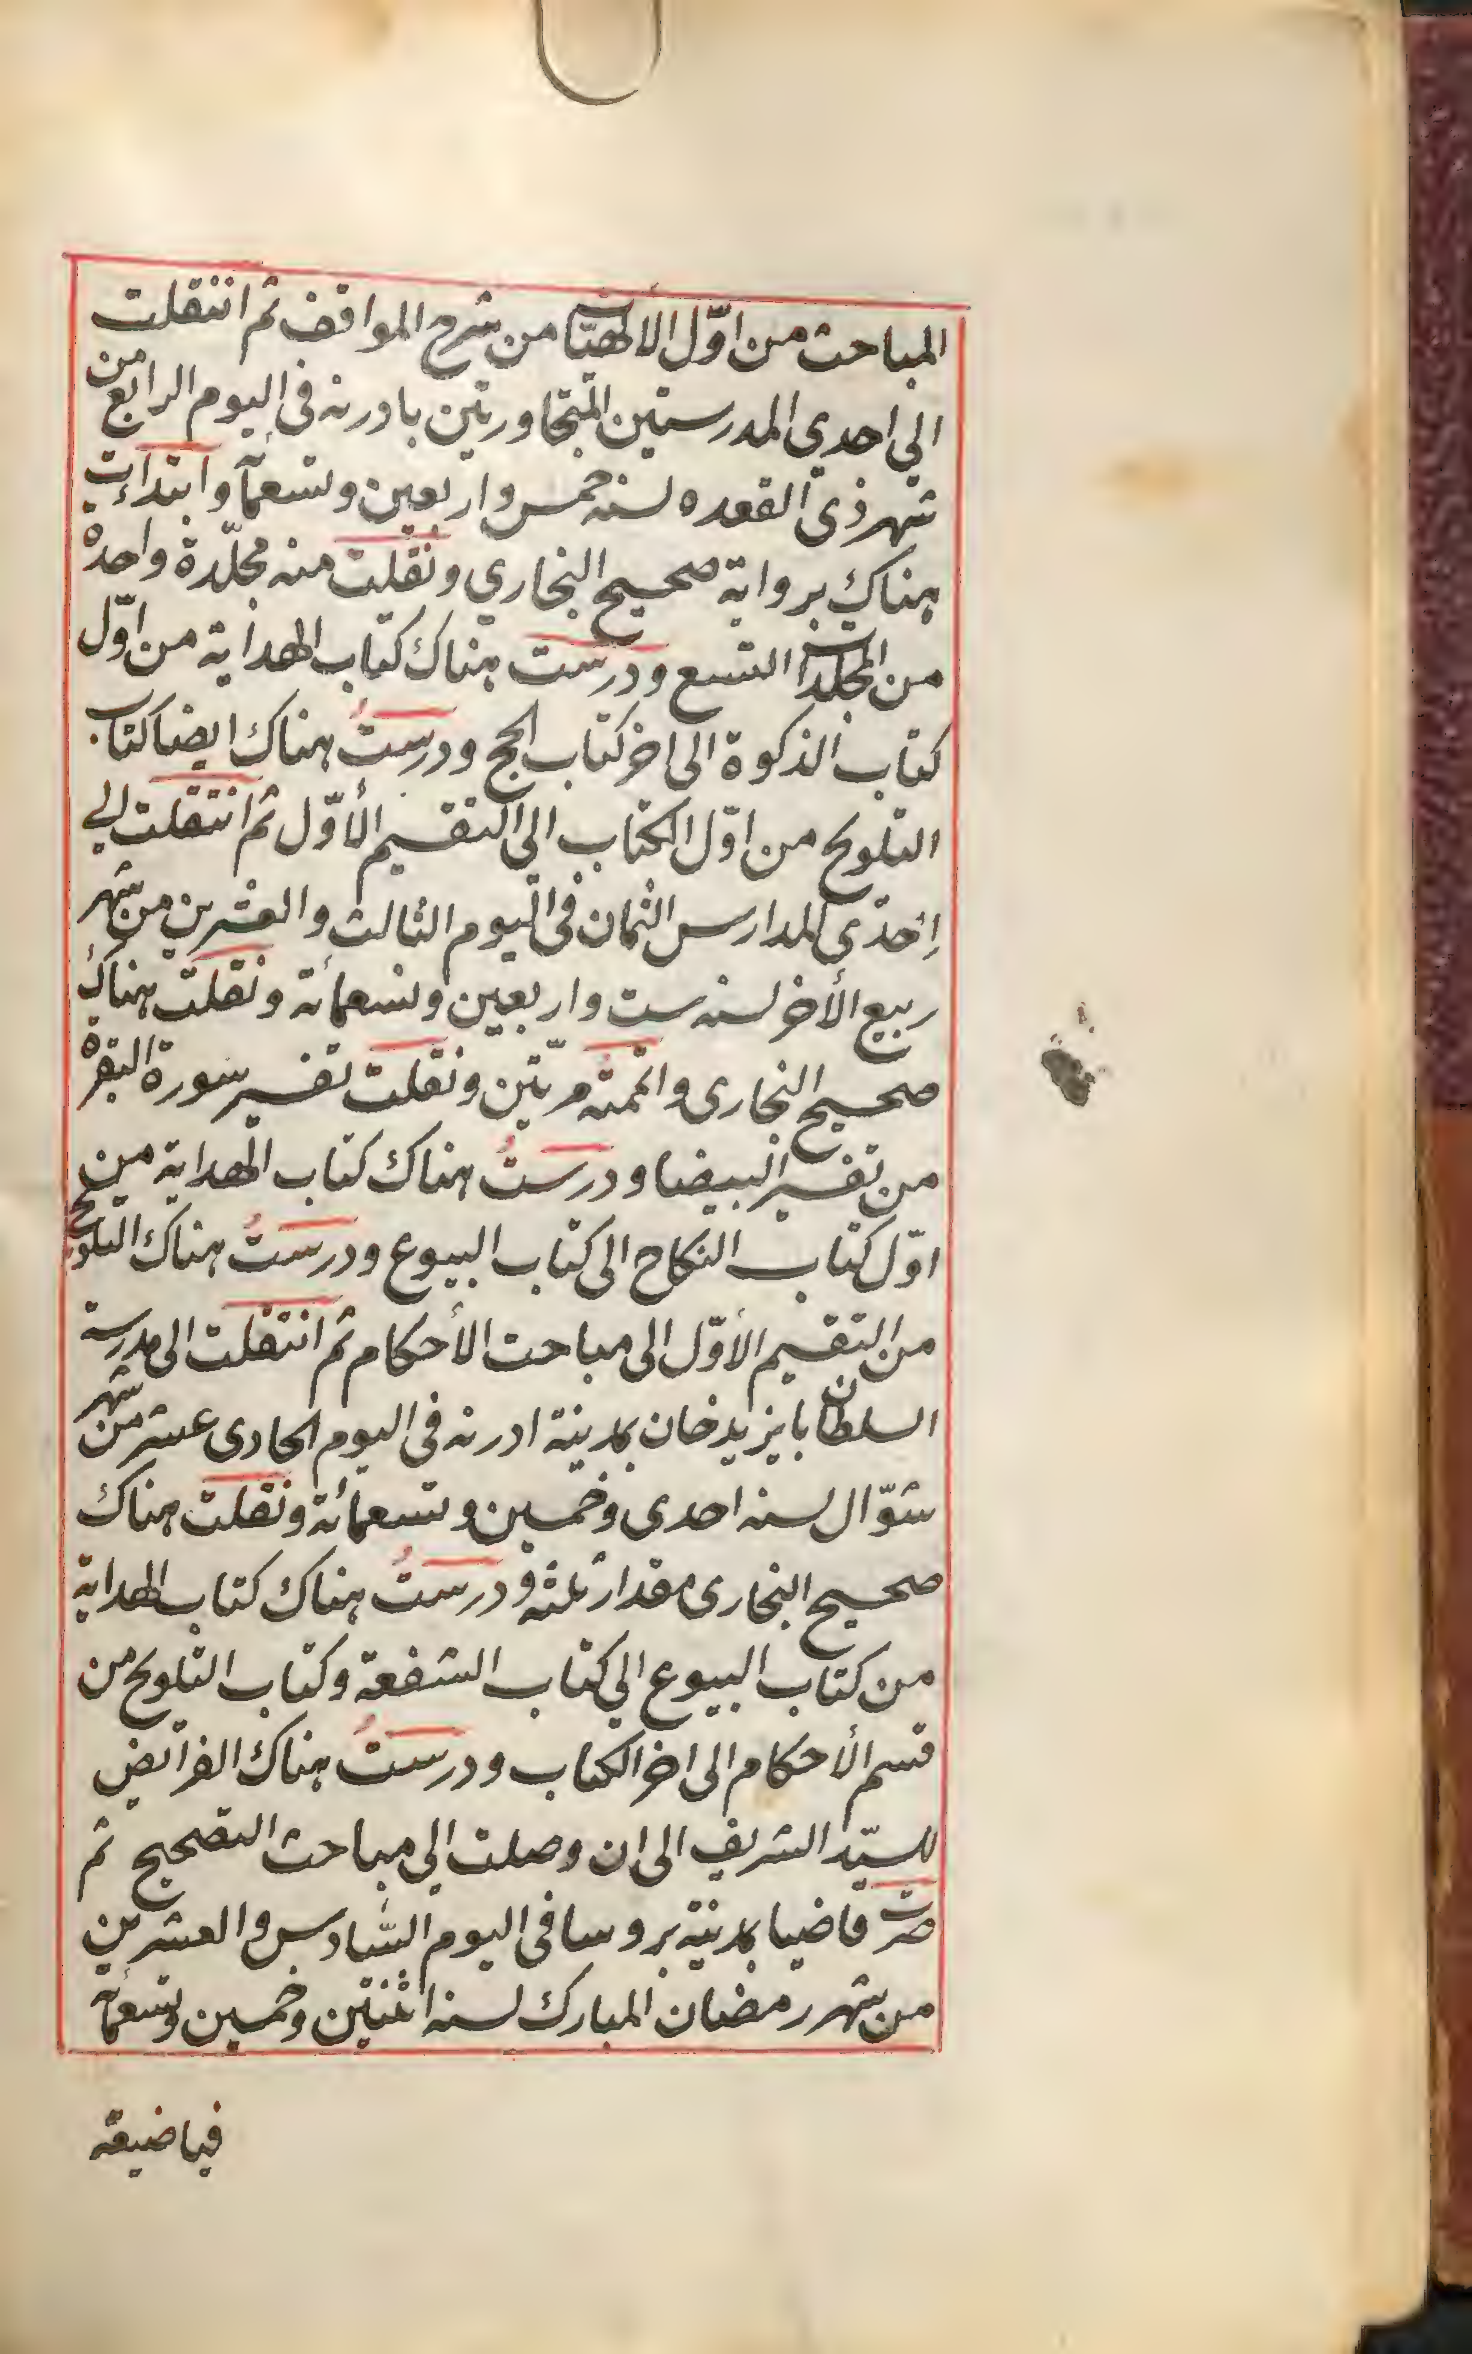 المباحث من اوّل الالهيّات من شرح المواقف ثم انتقلت
الي احدي المدرستين المتجاورتين بادرنه في اليوم الرابع من
شهر ذى القعده لسنه خمس واربعين وتسعمآ وابتدات
هناك برواية صحيح البخاري ونقلت منه مجلّدة واحدة
من المجلدات التسع ودرست هناك كتاب الهداية من اوّل
كتاب الذكوة الى اخر كتاب الحج ودرستُ هناك ايضا كتاب
التلويح من اوّل الكتاب الى التقسيم الأوّل ثم انتقلت الي
اِحدى المدارس الثمان في اليوم الثالث والعشرين من شهر
ربيع الأخر لسنه ست واربعين وتسعمائة ونقلت هناك
صحيح البخارى واتممته مرّتين ونقلت تفسير سورة البقرة
من تفسير البيضا ودرستُ هناك كتاب الهداية من
اوّل كتاب النكاح الى كتاب البيوع ودرستُ هناك التلويح
من التقسيم الأوّل الى مباحث الأحكام ثم انتقلت الى مدرسة
السلطان بايزيد خان بمدينة ادرنه في اليوم الحادى عشر من شهر
شوّال لسنه احدى وخمسين وتسعمائة ونقلت هناك
صحيح البخارى مقدار ثلثه ودرستُ هناك كتاب الهداية
من كتاب البيوع الي كتاب الشفعة وكتاب التلويح من
قسم الأحكام الى اخر الكتاب ودرستُ هناك الفرائض
للسيّد الشريف الى ان وصلت الي مباحث التصحيح ثم
صرت قاضيا بمدينة بروسا في اليوم السّادس والعشرين
من شهر رمضان المبارك لسنه اثنتين وخمسين وتسعمآ
فياضيعة